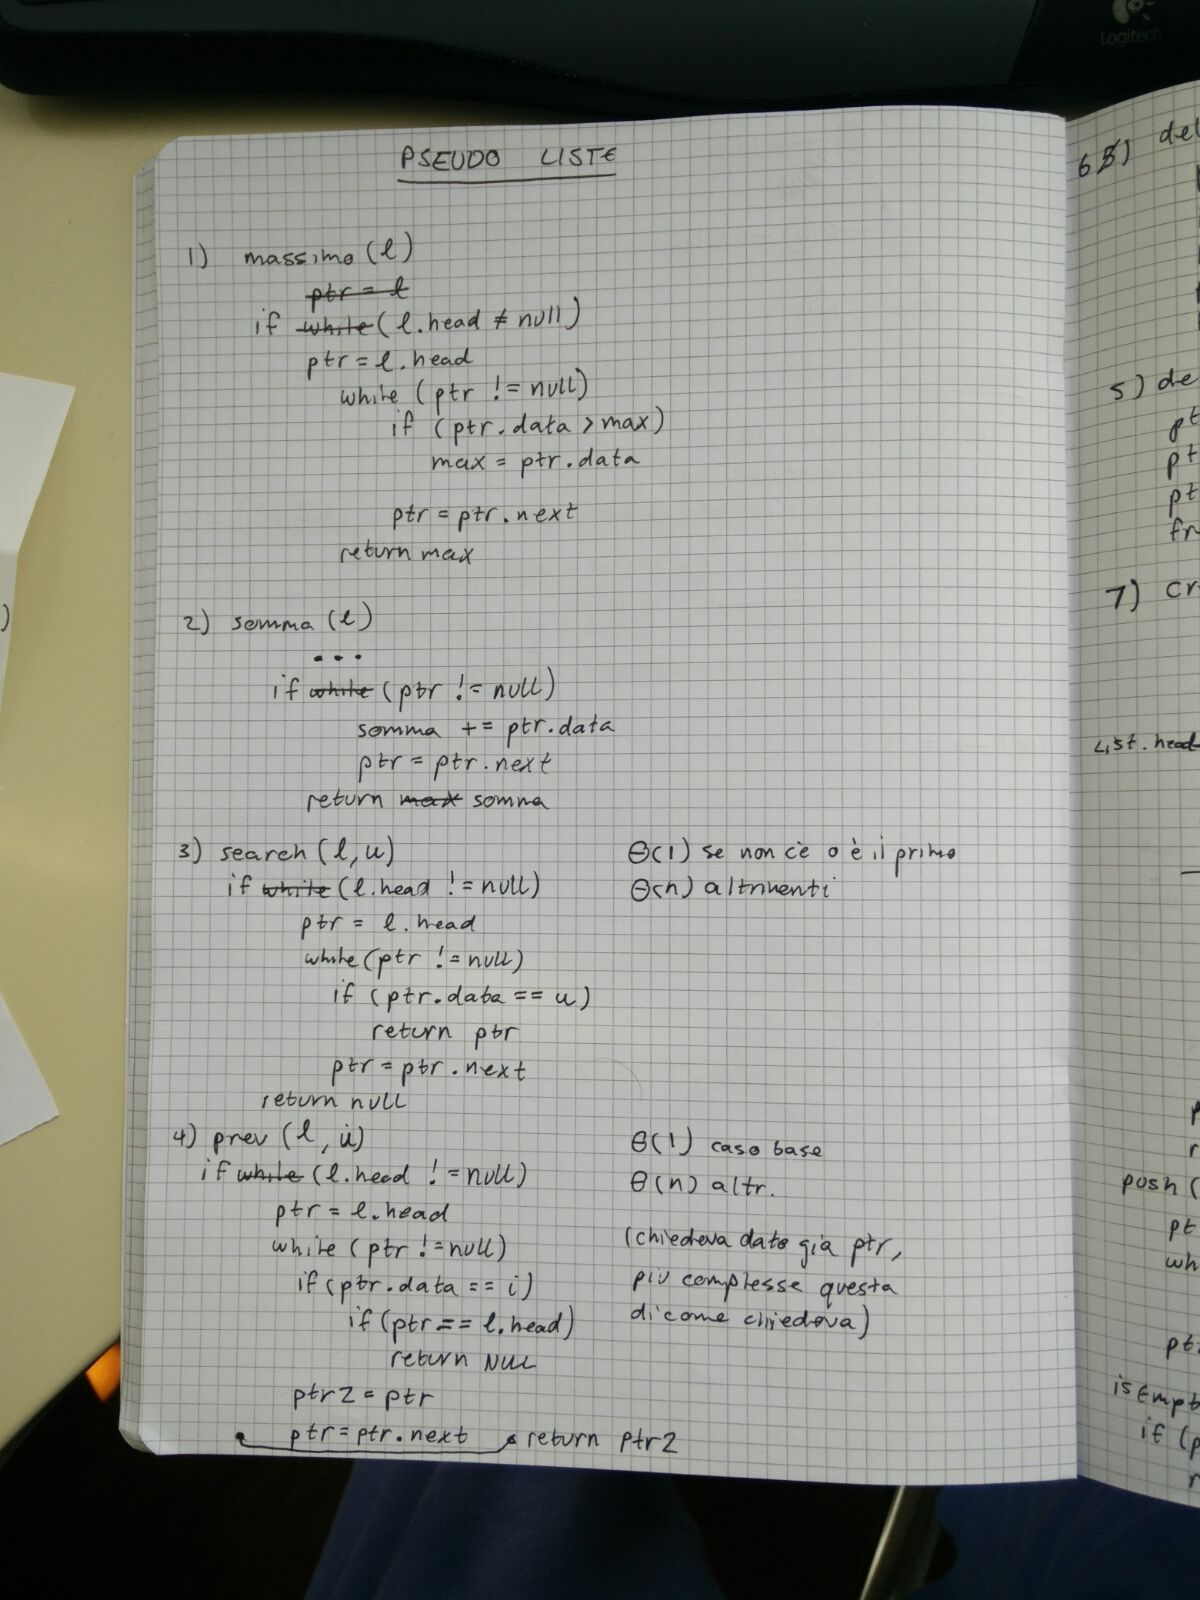 Logitech
PSEUDO LISTE
1) massimo (l)
ptr = l
if while (l.head ≠ null)
ptr = l.head
while (ptr != null)
if (ptr.data > max)
max = ptr.data
ptr = ptr.next
return max
2) somma (l)
...
if while (ptr != null)
somma += ptr.data
ptr = ptr.next
return max somma
3) search (l, u)
if while (l.head != null)
ptr = l.head
while (ptr != null)
if (ptr.data == u)
return ptr
ptr = ptr.next
return null
Θ(1) se non c'è o è il primo
Θ(n) altrimenti
4) prev (l, u)
if while (l.head != null)
ptr = l.head
while (ptr != null)
if (ptr.data == i)
if (ptr == l.head)
return NULL
ptr2 = ptr
ptr = ptr.next return ptr2
Θ(1) caso base
Θ(n) altr.
(chiedeva dato già ptr,
più complesse questa
di come chiedeva)
6) del
5) de
pt
pt
pt
fr
7) cr
List.head
p
r
push (
pt
wh
ptr
isEmpt
if (p
r